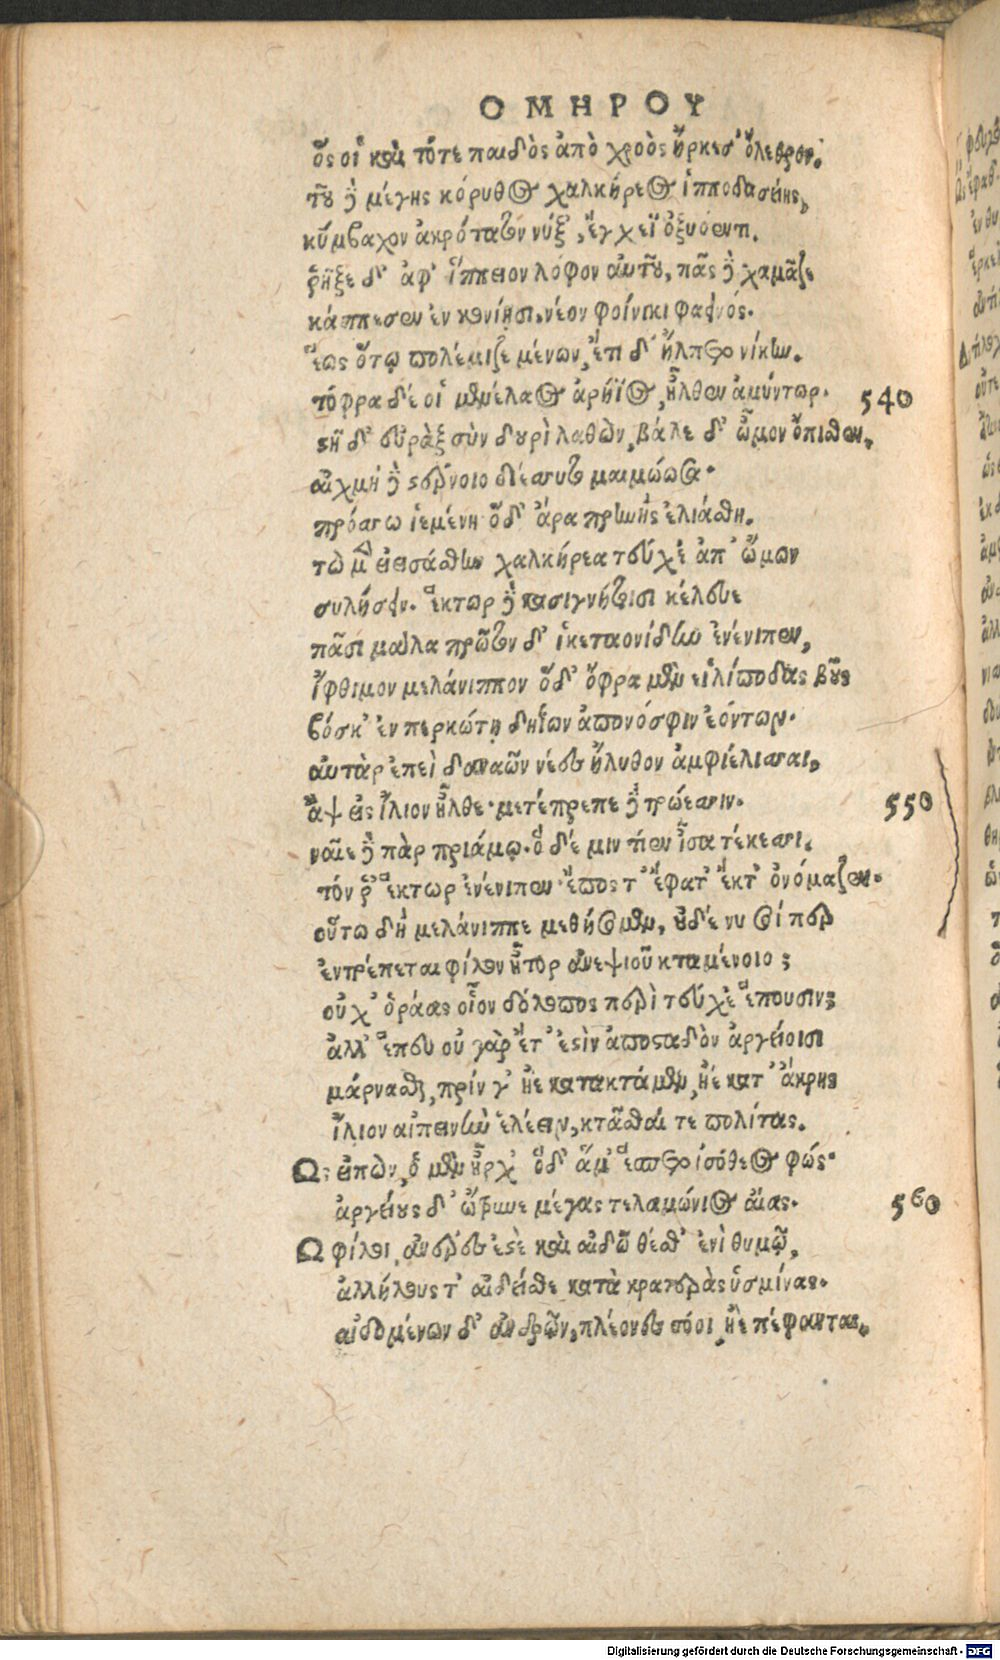 ΟΜΗΡΟΥ
ὅς οἱ καὶ τότε παιδὸς ἀπὸ χροὸς ἤρκεσ' ὄλεθρον.
τοῦ δὲ μέγης κόρυθος χαλκήρεος ἱπποδασείης,
κύμβαχον ἀκρότατον νύξ', ἔγχεϊ ὀξυόεντι.
ῥῆξε δ' ἀφ' ἵππειον λόφον αὐτοῦ, πᾶς δὲ χαμᾶζε
κάππεσεν ἐν κονίῃσι, νέον φοίνικι φαεινός.
ἕως ὅτῳ πολέμιζε μένων, ἔτι δ' ἤλπετο νίκην.
τόφρα δέ οἱ μενέλαος ἀρήϊος, ἦλθεν ἀμύντωρ. 540
στῆ δ' εὐρὰξ σὺν δουρὶ λαθὼν, βάλε δ' ὦμον ὄπισθεν.
αἰχμὴ δὲ στέρνοιο διέσσυτο μαιμώωσα.
πρόσσω ἱεμένη ὅδ' ἄρα πρηνὴς ἐλιάσθη.
τὼ μὲν ἐεισάσθην χαλκήρεα τεύχε' ἀπ' ὤμων
συλήσειν. ἕκτωρ δὲ κασιγνήτοισι κέλευε
πᾶσι μάλα πρῶτον δ' ἱκεταονίδην ἐνένιπεν,
ἴφθιμον μελάνιππον ὅδ' ὄφρα μὲν εἰλίποδας βοῦς
βόσκ' ἐν περκώτῃ δηΐων ἀπονόσφιν ἐόντων.
αὐτὰρ ἐπεὶ δαναῶν νέες ἤλυθον ἀμφιέλισσαι,
ἂψ εἰς ἴλιον ἦλθε· μετέπρεπε δὲ τρώεσσιν. 550
ναῖε δὲ πὰρ πριάμῳ. ὃ δέ μιν τίεν ἶσα τέκεσσι.
τόν ῥ' ἕκτωρ ἐνένιπεν· ἔπος τ' ἔφατ' ἔκτ' ὀνόμαζεν.
οὕτω δὴ μελάνιππε μεθήσομεν, οὐδέ νυ σοί περ
ἐντρέπεται φίλον ἦτορ ἀνεψιοῦ κταμένοιο;
οὐχ' ὁράας οἷον δόλοπος περὶ τεύχε' ἕπουσιν;
ἀλλ' ἕπευ οὐ γὰρ ἔτ' ἐστὶν ἀποσταδὸν ἀργείοισι
μάρνασθαι, πρίν γ' ἠὲ κατακτάμεν, ἠὲ κατ' ἄκρης
ἴλιον αἰπεινὴν ἑλέειν, κτᾶσθαί τε πολίτας.
Ως εἰπὼν, ὁ μὲν ἦρχ' ὅδ' ἅμ' ἕσπετο ἰσόθεος φώς.
ἀργείους δ' ὤτρυνε μέγας τελαμώνιος αἴας. 560
Ω φίλοι, ἀνέρες ἐστὲ καὶ αἰδῶ θέσθ' ἐνὶ θυμῷ,
ἀλλήλους τ' αἰδεῖσθε κατὰ κρατερὰς ὑσμίνας.
αἰδομένων δ' ἀνδρῶν, πλέονες σόοι, ἠὲ πέφανται.
Digitalisierung gefördert durch die Deutsche Forschungsgemeinschaft - DFG